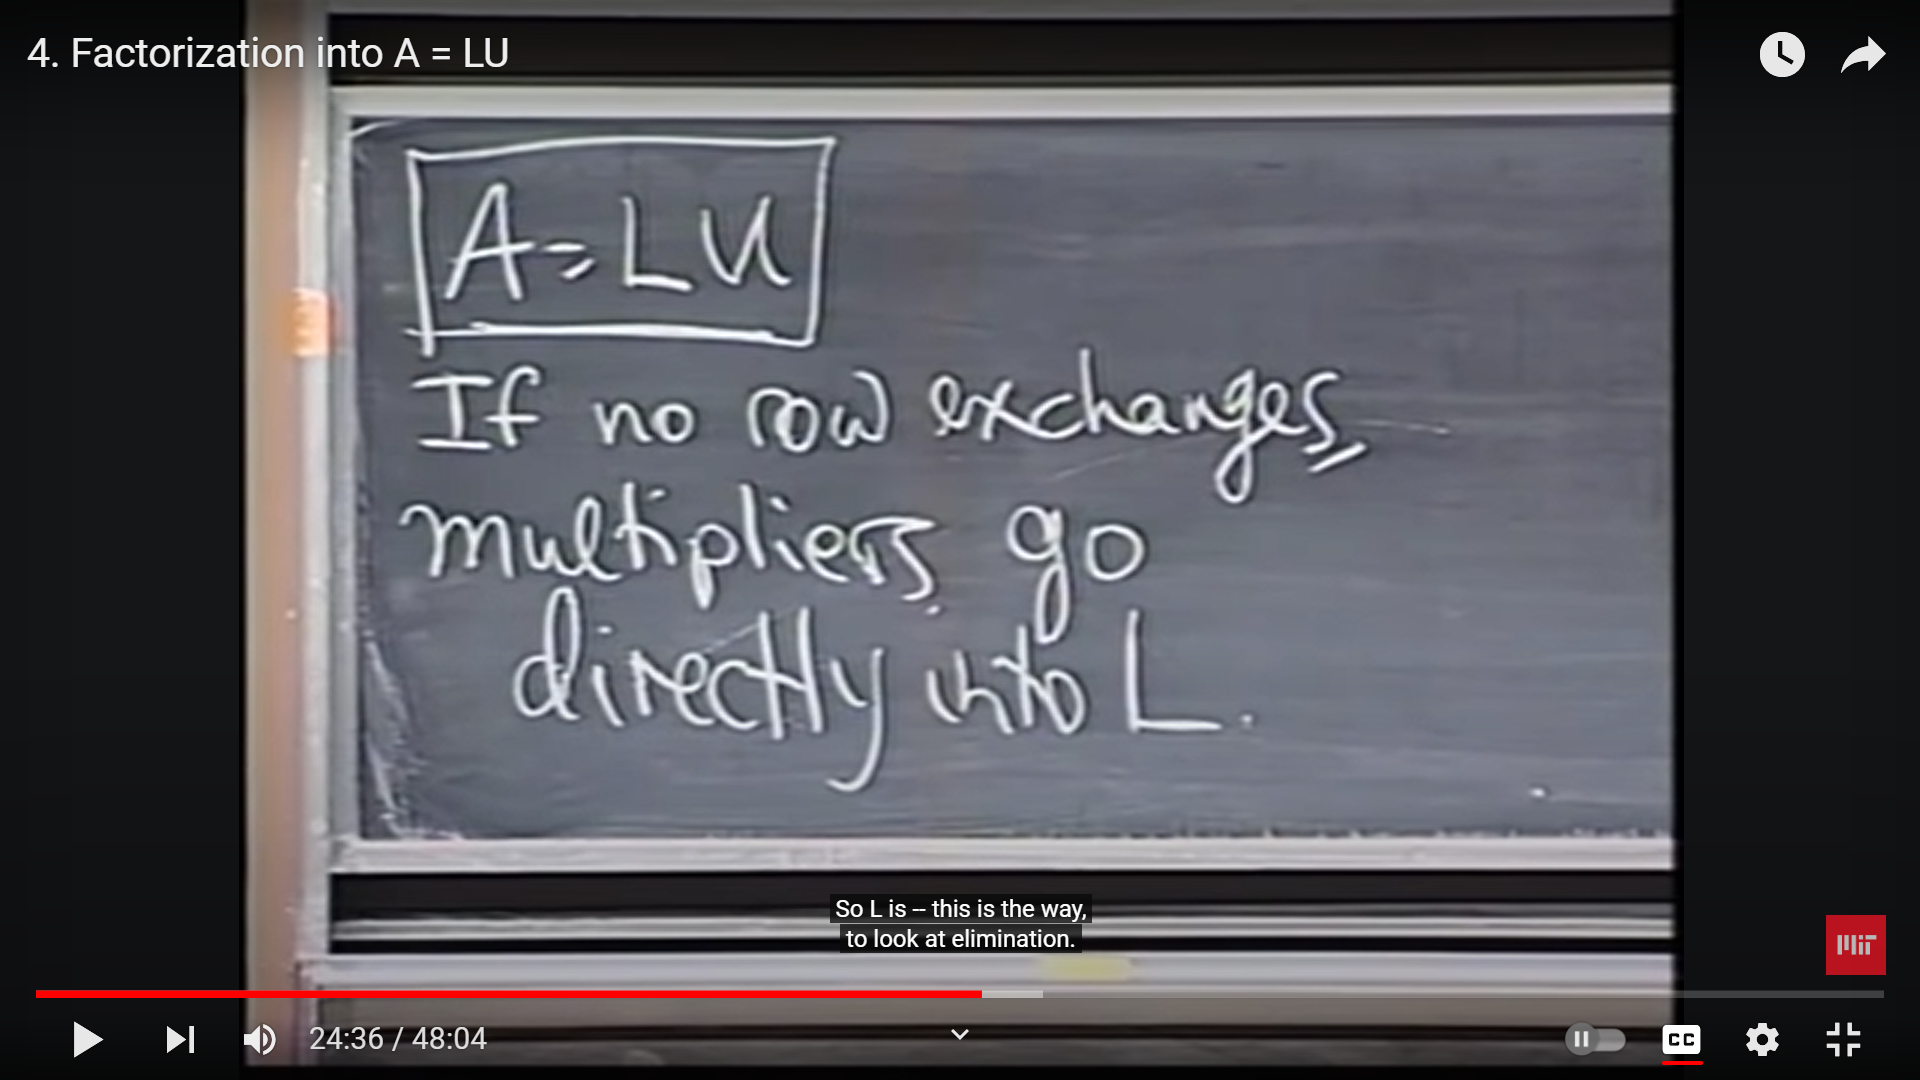 4. Factorization into A = LU
A = LU
If no row exchanges,
multipliers go
directly into L.
So L is -- this is the way,
to look at elimination.
MIT
24:36 / 48:04
CC